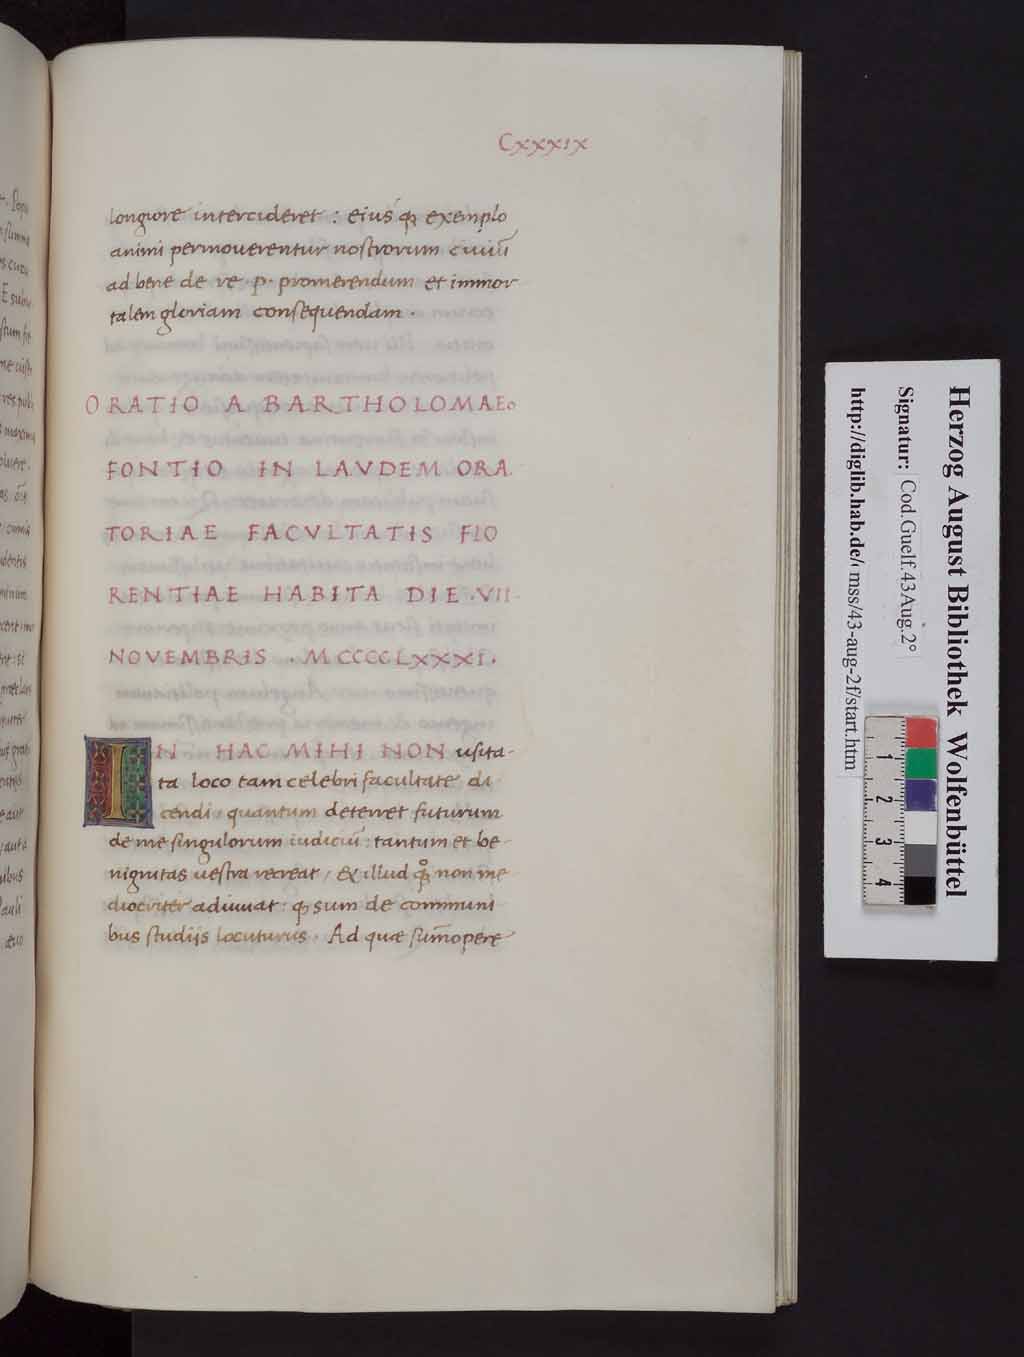 Cxxxix
longiore intercideret : eius qꝫ exemplo
animi permoverentur nostrorum civiũ
ad bene de re · p · promerendum et immor
talem gloriam consequendam .
ORATIO A BARTHOLOMAEO
FONTIO IN LAVDEM ORA
TORIAE FACVLTATIS FLO
RENTIAE HABITA DIE · VII ·
NOVEMBRIS · MCCCCLXXXI ·
IN HAC MIHI NON usita-
ta loco tam celebri facultate di
cendi : quantum deterret futurum
de me singulorum iudiciũ : tantum et be-
nignitas vestra recreat / & illud qꝫ non me
diocriter adiuvat : qꝫ sum de communi
bus studijs locuturus . Ad quae sũmopere
Herzog August Bibliothek Wolfenbüttel
Signatur: Cod.Guelf.43 Aug.2°
http://diglib.hab.de/ mss/43-aug-2f/start.htm
1 2 3 4